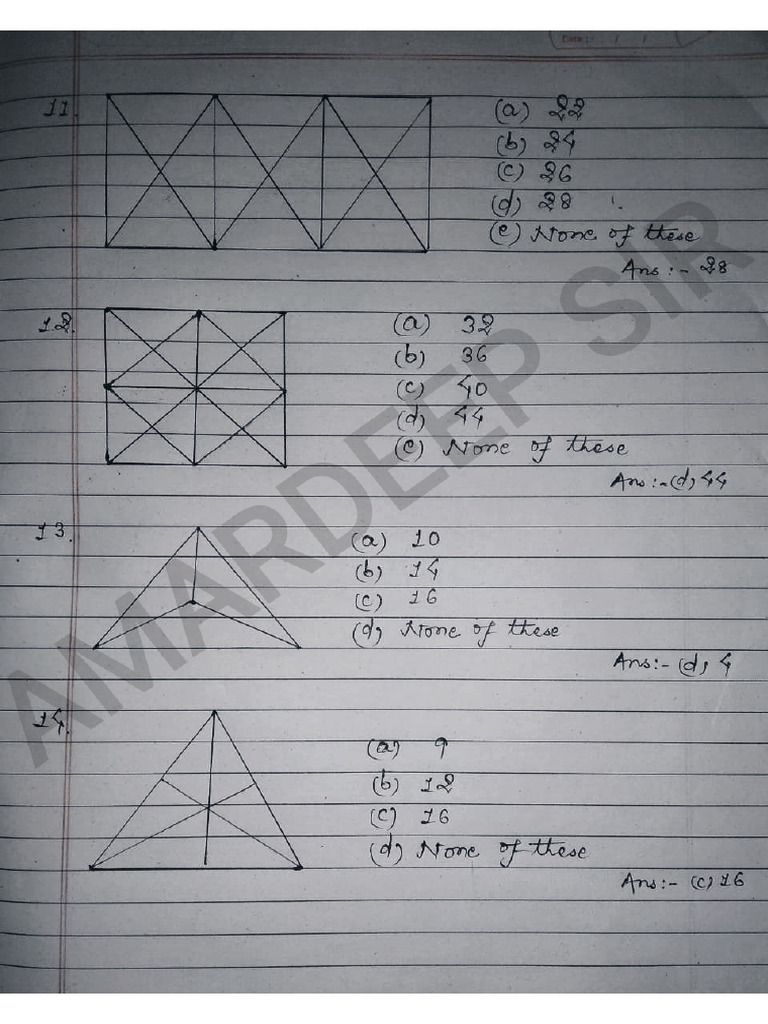 11.
(a) 22
(b) 24
(c) 26
(d) 28
(e) None of these
Ans :- 28
12.
(a) 32
(b) 36
(c) 40
(d) 44
(e) None of these
Ans :- (d) 44
13.
(a) 10
(b) 14
(c) 16
(d) None of these
Ans :- (d) 4
14.
(a) 9
(b) 12
(c) 16
(d) None of these
Ans :- (c) 16
AMARDEEP SIR